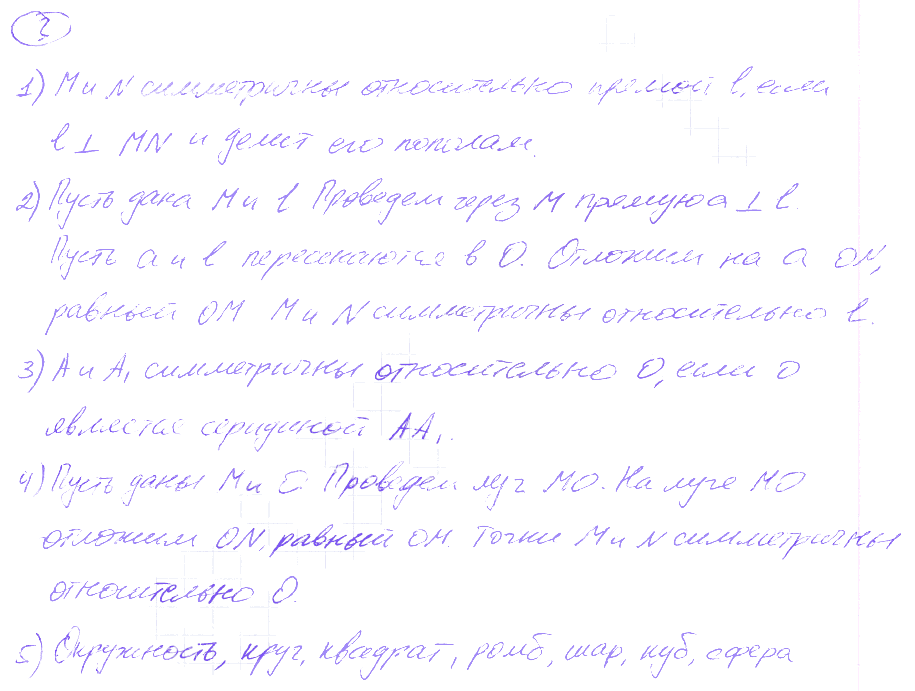 ?
1) M и N симметричны относительно прямой l, если
l ⊥ MN и делит его пополам.
2) Пусть дана M и l. Проведем через M прямую a ⊥ l.
Пусть a и l пересекаются в O. Отложим на a ON,
равный OM. M и N симметричны относительно l.
3) A и A₁ симметричны относительно O, если O
является серидиной AA₁.
4) Пусть даны M и O. Проведем луч MO. На луче MO
отложим ON, равный OM. Точки M и N симметричны
относительно O.
5) Окружность, круг, квадрат, ромб, шар, куб, сфера